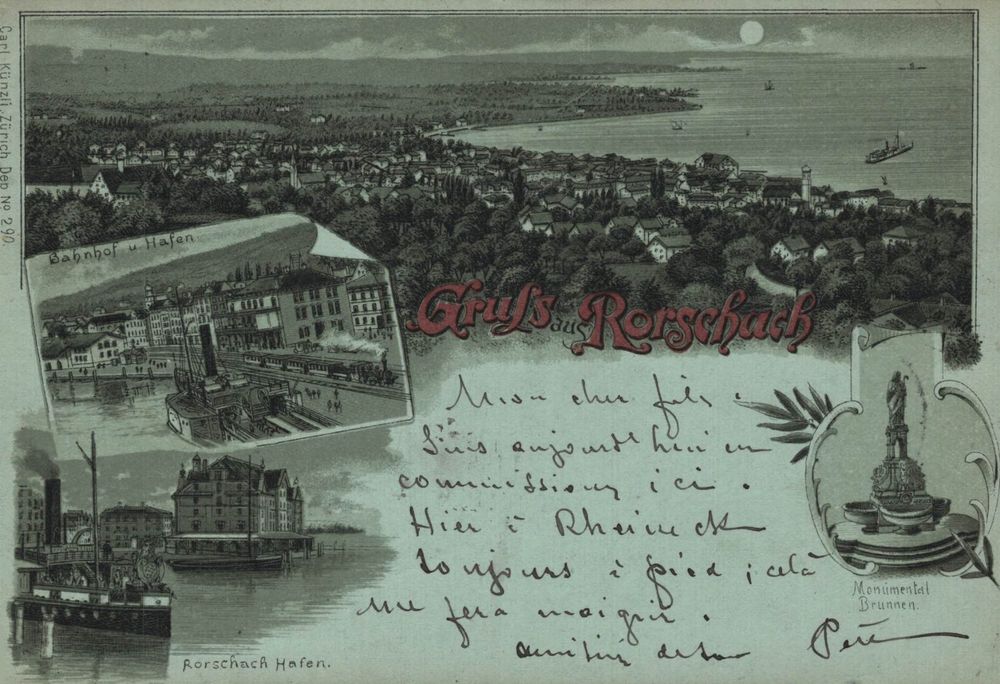 Carl Künzli, Zürich Dep No 290.
Bahnhof u Hafen.
Gruss aus Rorschach
Mon cher fils.
Suis aujourd'hui en
commissions ici.
Hier à Rheineck
toujours à pied; cela
me fera maigrir.
amitiés de ton Père
Monumental
Brunnen.
Rorschach Hafen.